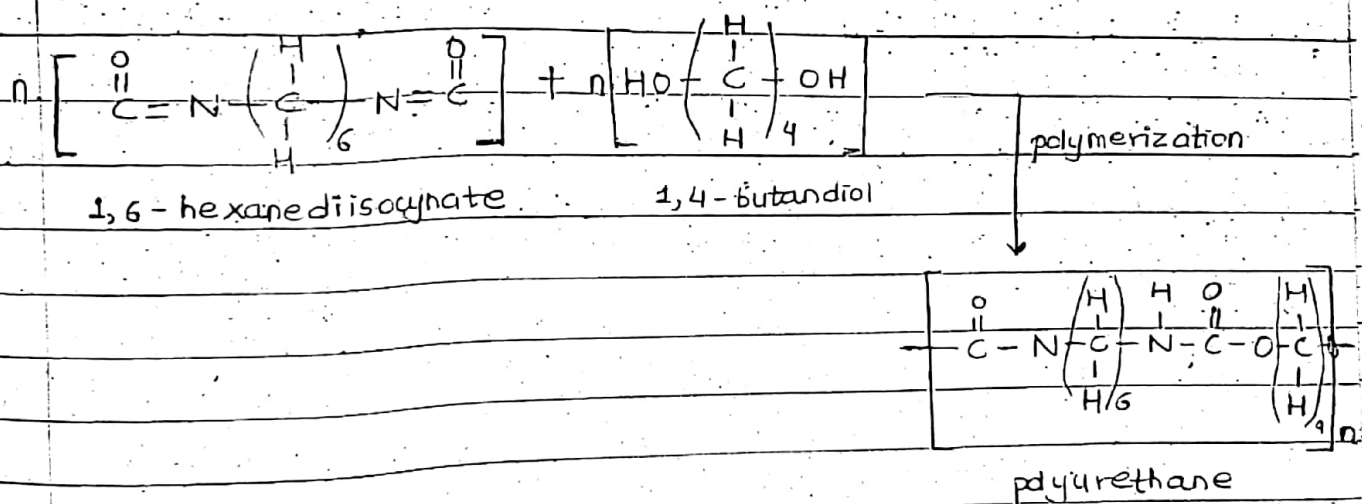 n [ O=C=N-(CH H)6-N=C=O ] + n [ HO-(CH H)4-OH ]
polymerization
1,6-hexanediisocynate 1,4-butandiol
[ -C(=O)-N-(CH H)6-N(H)-C(=O)-O-(CH H)4- ]n
polyurethane